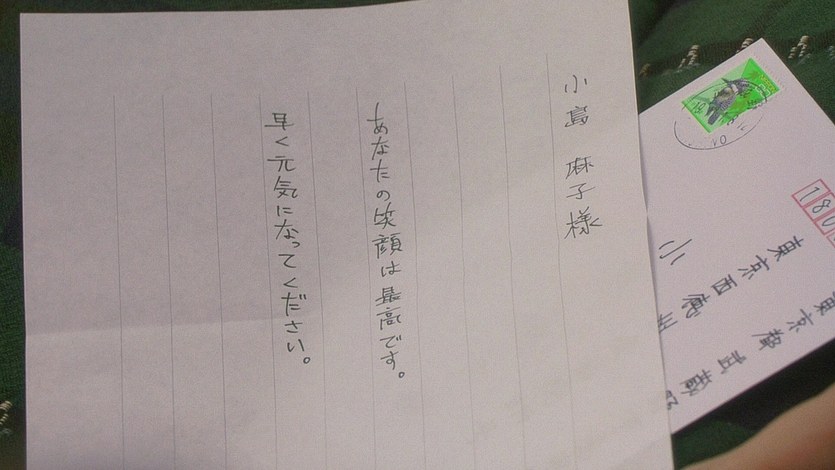 小島 麻子様
あなたの笑顔は最高です。
早く元気になってください。
180
東京都武蔵
東京西
小